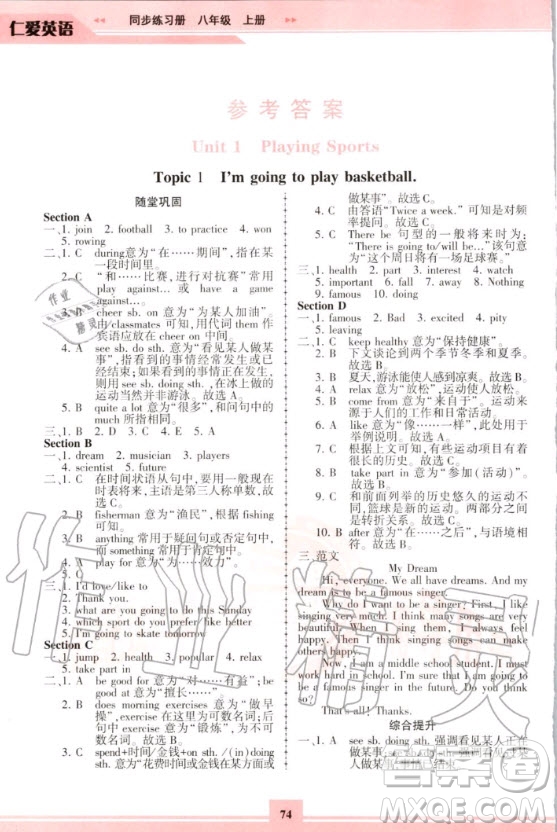 仁爱英语
同步练习册 八年级 上册
参考答案
Unit 1 Playing Sports
Topic 1 I'm going to play basketball.
随堂巩固
Section A
一、1. join 2. football 3. to practice 4. won
5. rowing
二、1. C during意为“在……期间”,指在某
一段时间里。
2. C “和……比赛,进行对抗赛”常用
play against...或 have a game
against...。
3. B cheer sb. on 意为“为某人加油”。
由classmates可知,用代词them作
宾语应放在cheer on中间。
4. A see sb. do sth.意为“看见某人做某
事”,指看到的事情经常发生或已
经发生;see sb. doing sth.指看到的
事情正在发生。skate意为“滑冰”,
5. B quite a lot 意为“很多”,和动词连
三、1. B 2. D 3. C 4. A
Section B
一、1. dream 2. musician 3. players
4. scientist 5. future
二、1. C 在时间状语从句中,要用一般现在
时表将来,主语是第三人称单数,故
选C。
2. B fisherman 意为“渔民”,根据句意
可知选B。
3. B anything 常用于疑问句或否定句
中,而something常用于肯定句中。
4. A play for 意为“为……效力”。
5. C
三、1. I'd love/like to
2. Thank you.
3. what are you going to do this Sunday
4. which sport do you prefer
5. I'm going to skate tomorrow
Section C
一、1. jump 2. health 3. popular 4. relax
5. take part in
二、1. A be good for 意为“对……有益”,
be good at意为“擅长……”。
2. B does morning exercises 意为“做早
操”,exercise在句中为可数名词;后
句中exercise意为“锻炼”,为不可
数名词。故选B。
3. C spend+时间/金钱+on sth./(in)
doing sth.意为“花费时间或金钱在某方面或
做某事”。故选C。
4. C 由答语“Twice a week.”可知是对频
率提问。故选C。
5. C There be 句型的一般将来时为
“There is going to/will be...”,该句意为
“这个周日将有一场足球赛。”
三、1. health 2. part 3. interest 4. watch
5. important 6. fall 7. was 8. makes
9. famous 10. doing
Section D
一、1. famous 2. Bad 3. excited 4. pity
5. leaving
二、1. C keep healthy 意为“保持健康”。
2. B 下文谈论到两个季节冬季和夏季。
3. B 夏天,游泳能使人感到凉爽。故选B。
4. A relax 意为“放松”。运动使人放松。
5. B come from 意为“来自于”。运动来
源于人们的工作和日常活动。
6. C like 意为“像……一样”,此处用于
举例说明。故选C。
7. B 根据上文可知,有些运动项目有着
很长的历史。故选B。
8. B take part in 意为“参加(活动)”。
故选B。
9. C 和前面列举的历史悠久的运动不
同,篮球是最新的运动。两分句之间
是转折关系。故选C。
10. B after 意为“在……之后”,与语境
相符。故选B。
三、范文
My Dream
Hi, everyone. We all have dreams. And my
dream is to be a famous singer.
Why do I want to be a singer? First, I like
singing very much. I think singing makes me
happy. Then I think singing songs can make
others happy.
Now, I am a middle school student. I must
work hard and sing more songs. I want to be a
famous singer in the future. Do you think I can
do it?
That's all! Thanks.
综合提升
一、1. A see sb. doing sth. 强调看见某人正在
做某事;see sb. do sth. 强调看见某人
74
作业精灵
答案圈
MXQE.COM